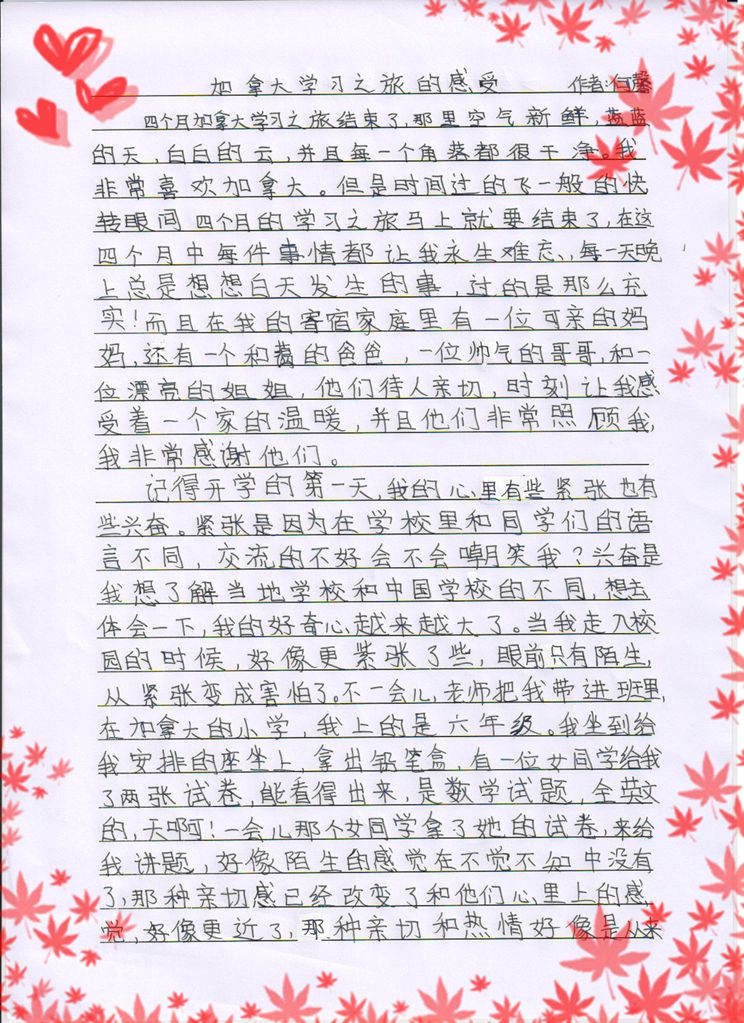 加拿大学习之旅的感受 作者:何馨
四个月加拿大学习之旅结束了,那里空气新鲜,蓝蓝
的天,白白的云,并且每一个角落都很干净。我
非常喜欢加拿大。但是时间过的飞一般的快
转眼间四个月的学习之旅马上就要结束了,在这
四个月中每件事情都让我永生难忘,每一天晚
上总是想想白天发生的事,过的是那么充
实!而且在我的寄宿家庭里有一位可亲的妈
妈,还有一个和蔼的爸爸,一位帅气的哥哥,和一
位漂亮的姐姐,他们待人亲切,时刻让我感
受着一个家的温暖,并且他们非常照顾我,
我非常感谢他们。
记得开学的第一天,我的心里有些紧张也有
些兴奋。紧张是因为在学校里和同学们的语
言不同,交流的不好会不会嘲笑我?兴奋是
我想了解当地学校和中国学校的不同,想去
体会一下,我的好奇心越来越大了。当我走入校
园的时候,好像更紧张了些,眼前只有陌生,
从紧张变成害怕了。不一会儿,老师把我带进班里,
在加拿大的小学,我上的是六年级。我坐到给
我安排的座坐上,拿出铅笔盒,有一位女同学给我
了两张试卷,能看得出来,是数学试题,全英文
的,天啊!一会儿那个女同学拿了她的试卷,来给
我讲题,好像陌生的感觉在不觉不知中没有
了,那种亲切感已经改变了和他们心里上的感
觉,好像更近了,那种亲切和热情好像是从来